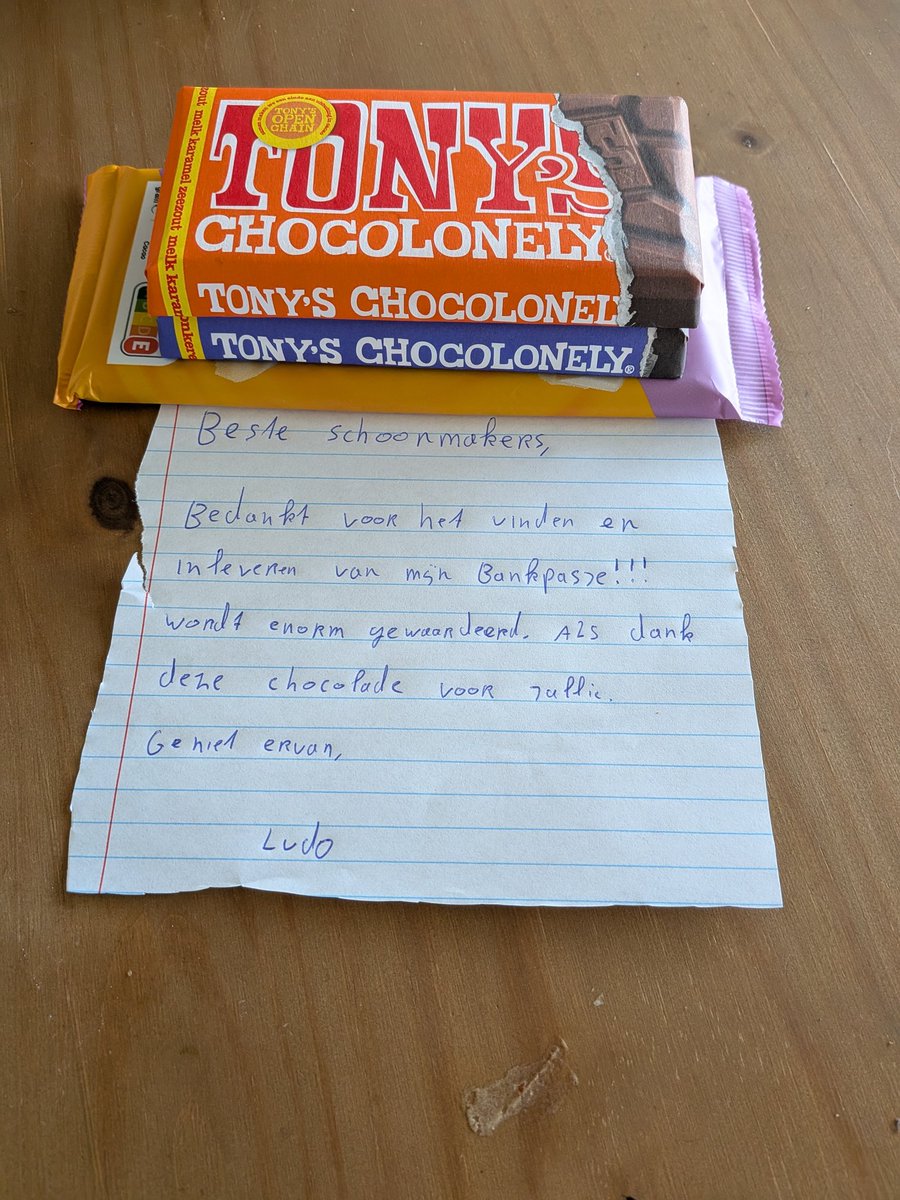 TONY'S
CHOCOLONELY
TONY'S OPEN CHAIN
melk karamel zeezout melk karamel
TONY'S CHOCOLONELY
TONY'S CHOCOLONELY®
Cacao
E
Beste schoonmakers,
Bedankt voor het vinden en
inleveren van mijn Bankpasje!!!
wordt enorm gewaardeerd. Als dank
deze chocolade voor jullie.
Geniet ervan,
Ludo